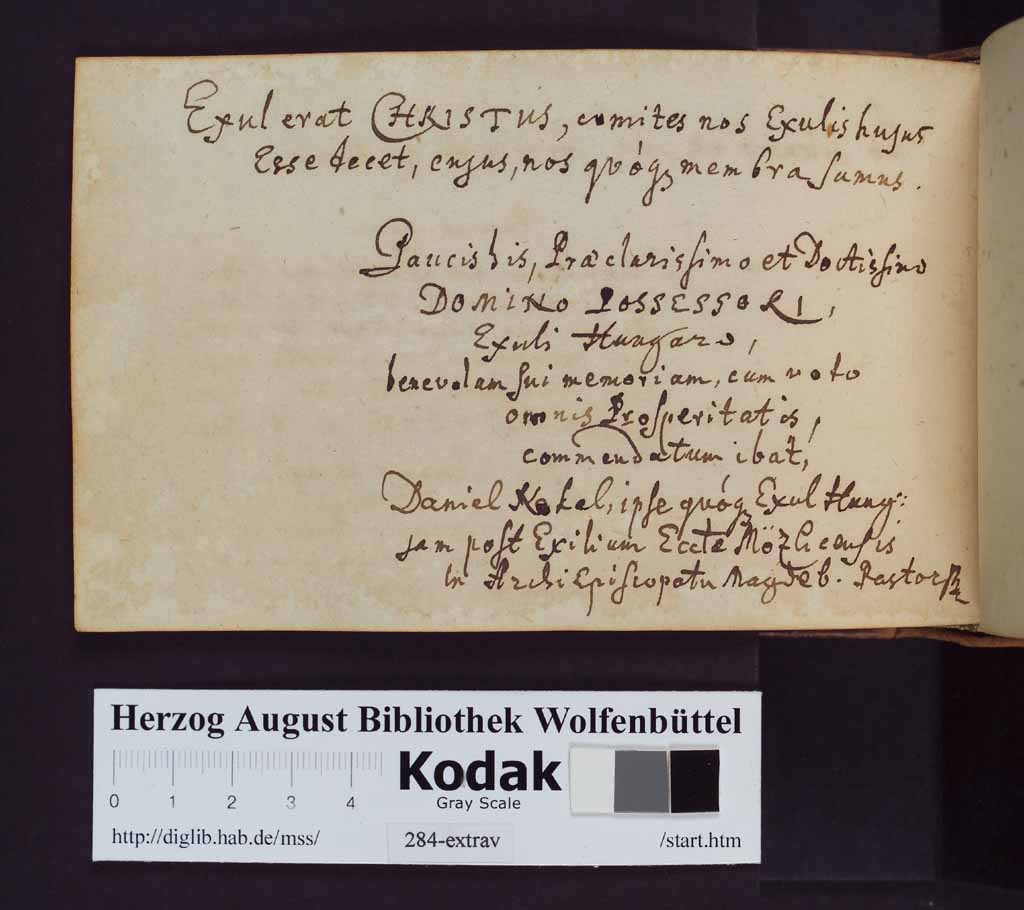 Exul erat CHRISTUS, comites nos Exulis hujus
Esse decet, cujus, nos quóq₃ membra sumus.
Paucis his, Præclarissimo et Doctissimo
DOMINO POSSESSORI,
Exuli Hungaro,
benevolam sui memoriam, cum voto
omnis Prosperitatis,
commendatum ibat,
Daniel ipse quóq₃ Exul Hung:
jam post Exilium Eccłæ Mözlicensis
in ArchiEpiscopatu Magdeb. Pastor
Herzog August Bibliothek Wolfenbüttel
Kodak
Gray Scale
0 1 2 3 4
http://diglib.hab.de/mss/ 284-extrav /start.htm